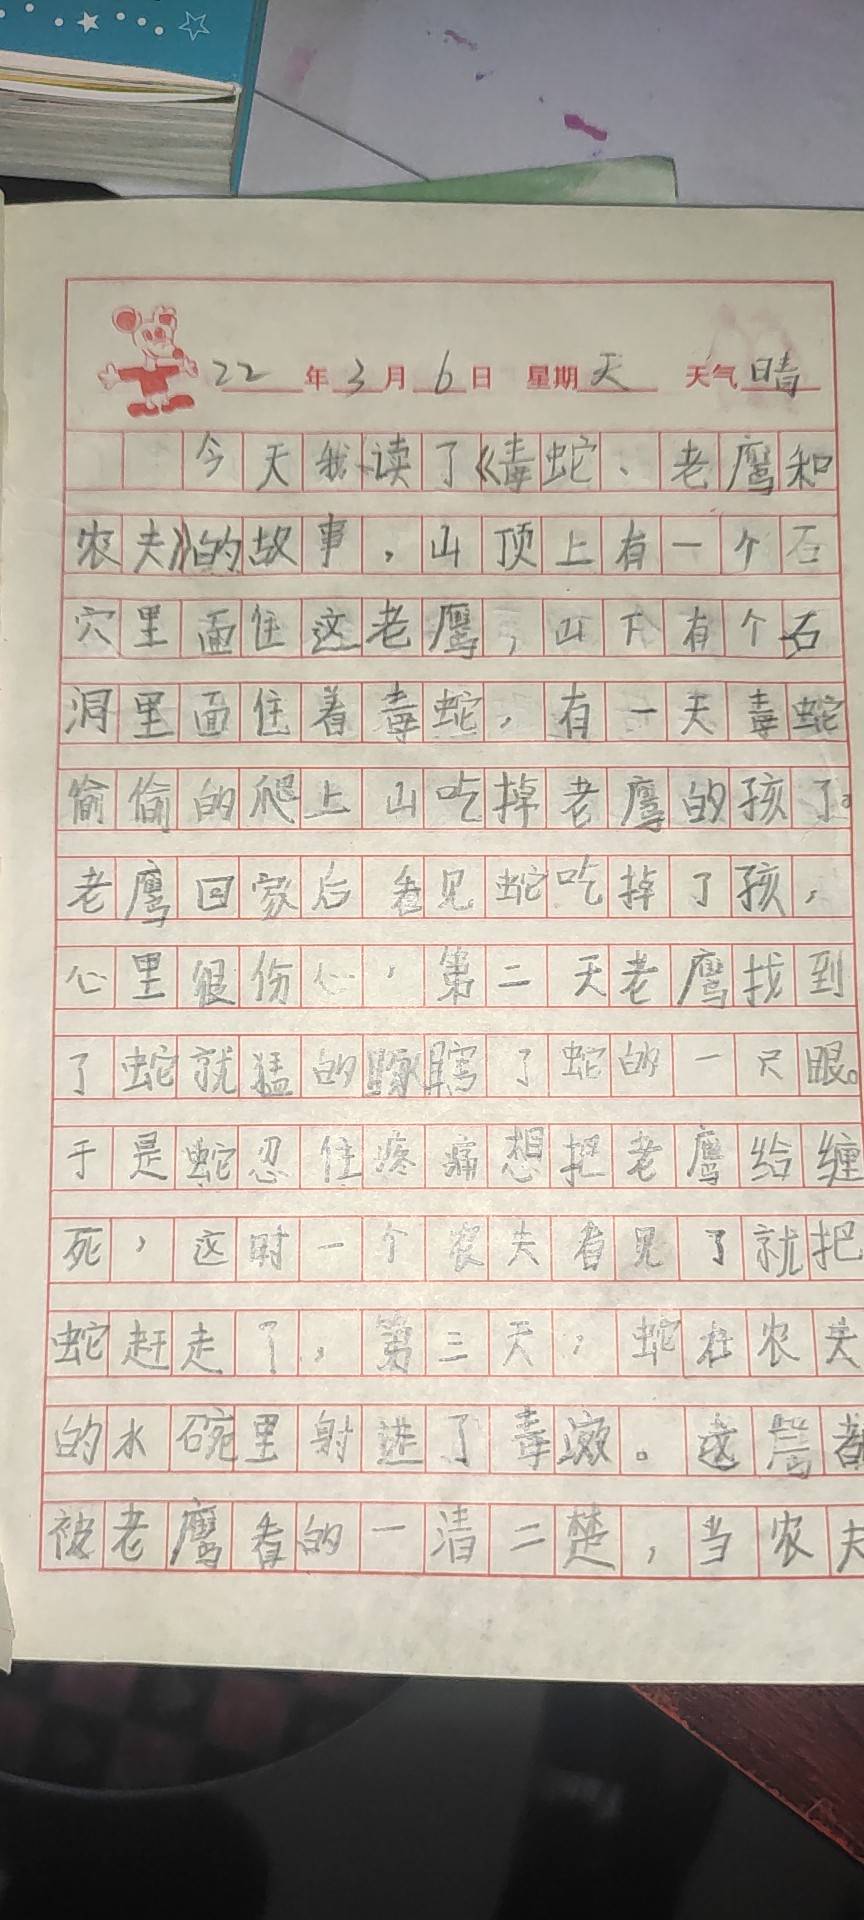 22年3月6日 星期天 天气晴
今天我读了《毒蛇、老鹰和
农夫》的故事,山顶上有一个石
穴里面住这老鹰,山下有个石
洞里面住着毒蛇,有一天毒蛇
偷偷的爬上山吃掉老鹰的孩了。
老鹰回家后看见蛇吃掉了孩,
心里很伤心,第二天老鹰找到
了蛇就猛的啄瞎了蛇的一只眼。
于是蛇忍住疼痛想把老鹰给缠
死,这时一个农夫看见了就把
蛇赶走了,第三天,蛇在农夫
的水碗里射进了毒液。这都
被老鹰看的一清二楚,当农夫